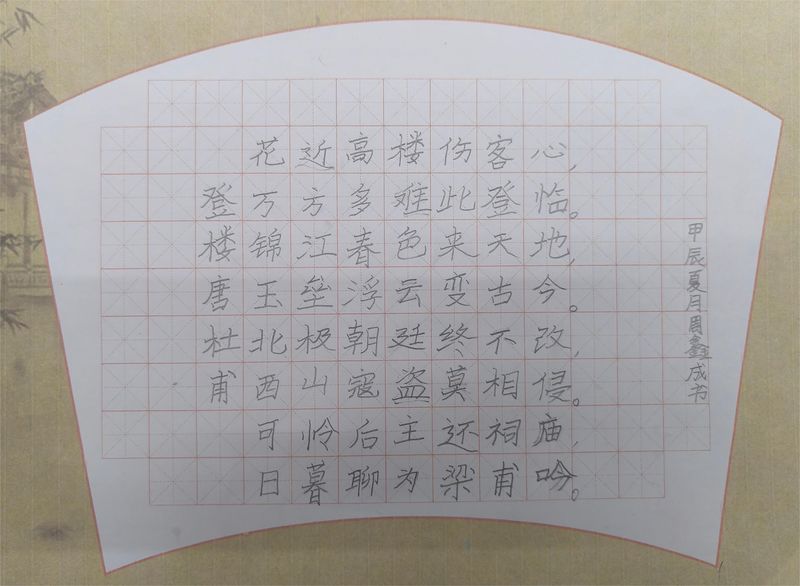 登楼唐杜甫
花近高楼伤客心,
万方多难此登临。
锦江春色来天地,
玉垒浮云变古今。
北极朝廷终不改,
西山寇盗莫相侵。
可怜后主还祠庙,
日暮聊为梁甫吟。
甲辰夏月周鑫成书